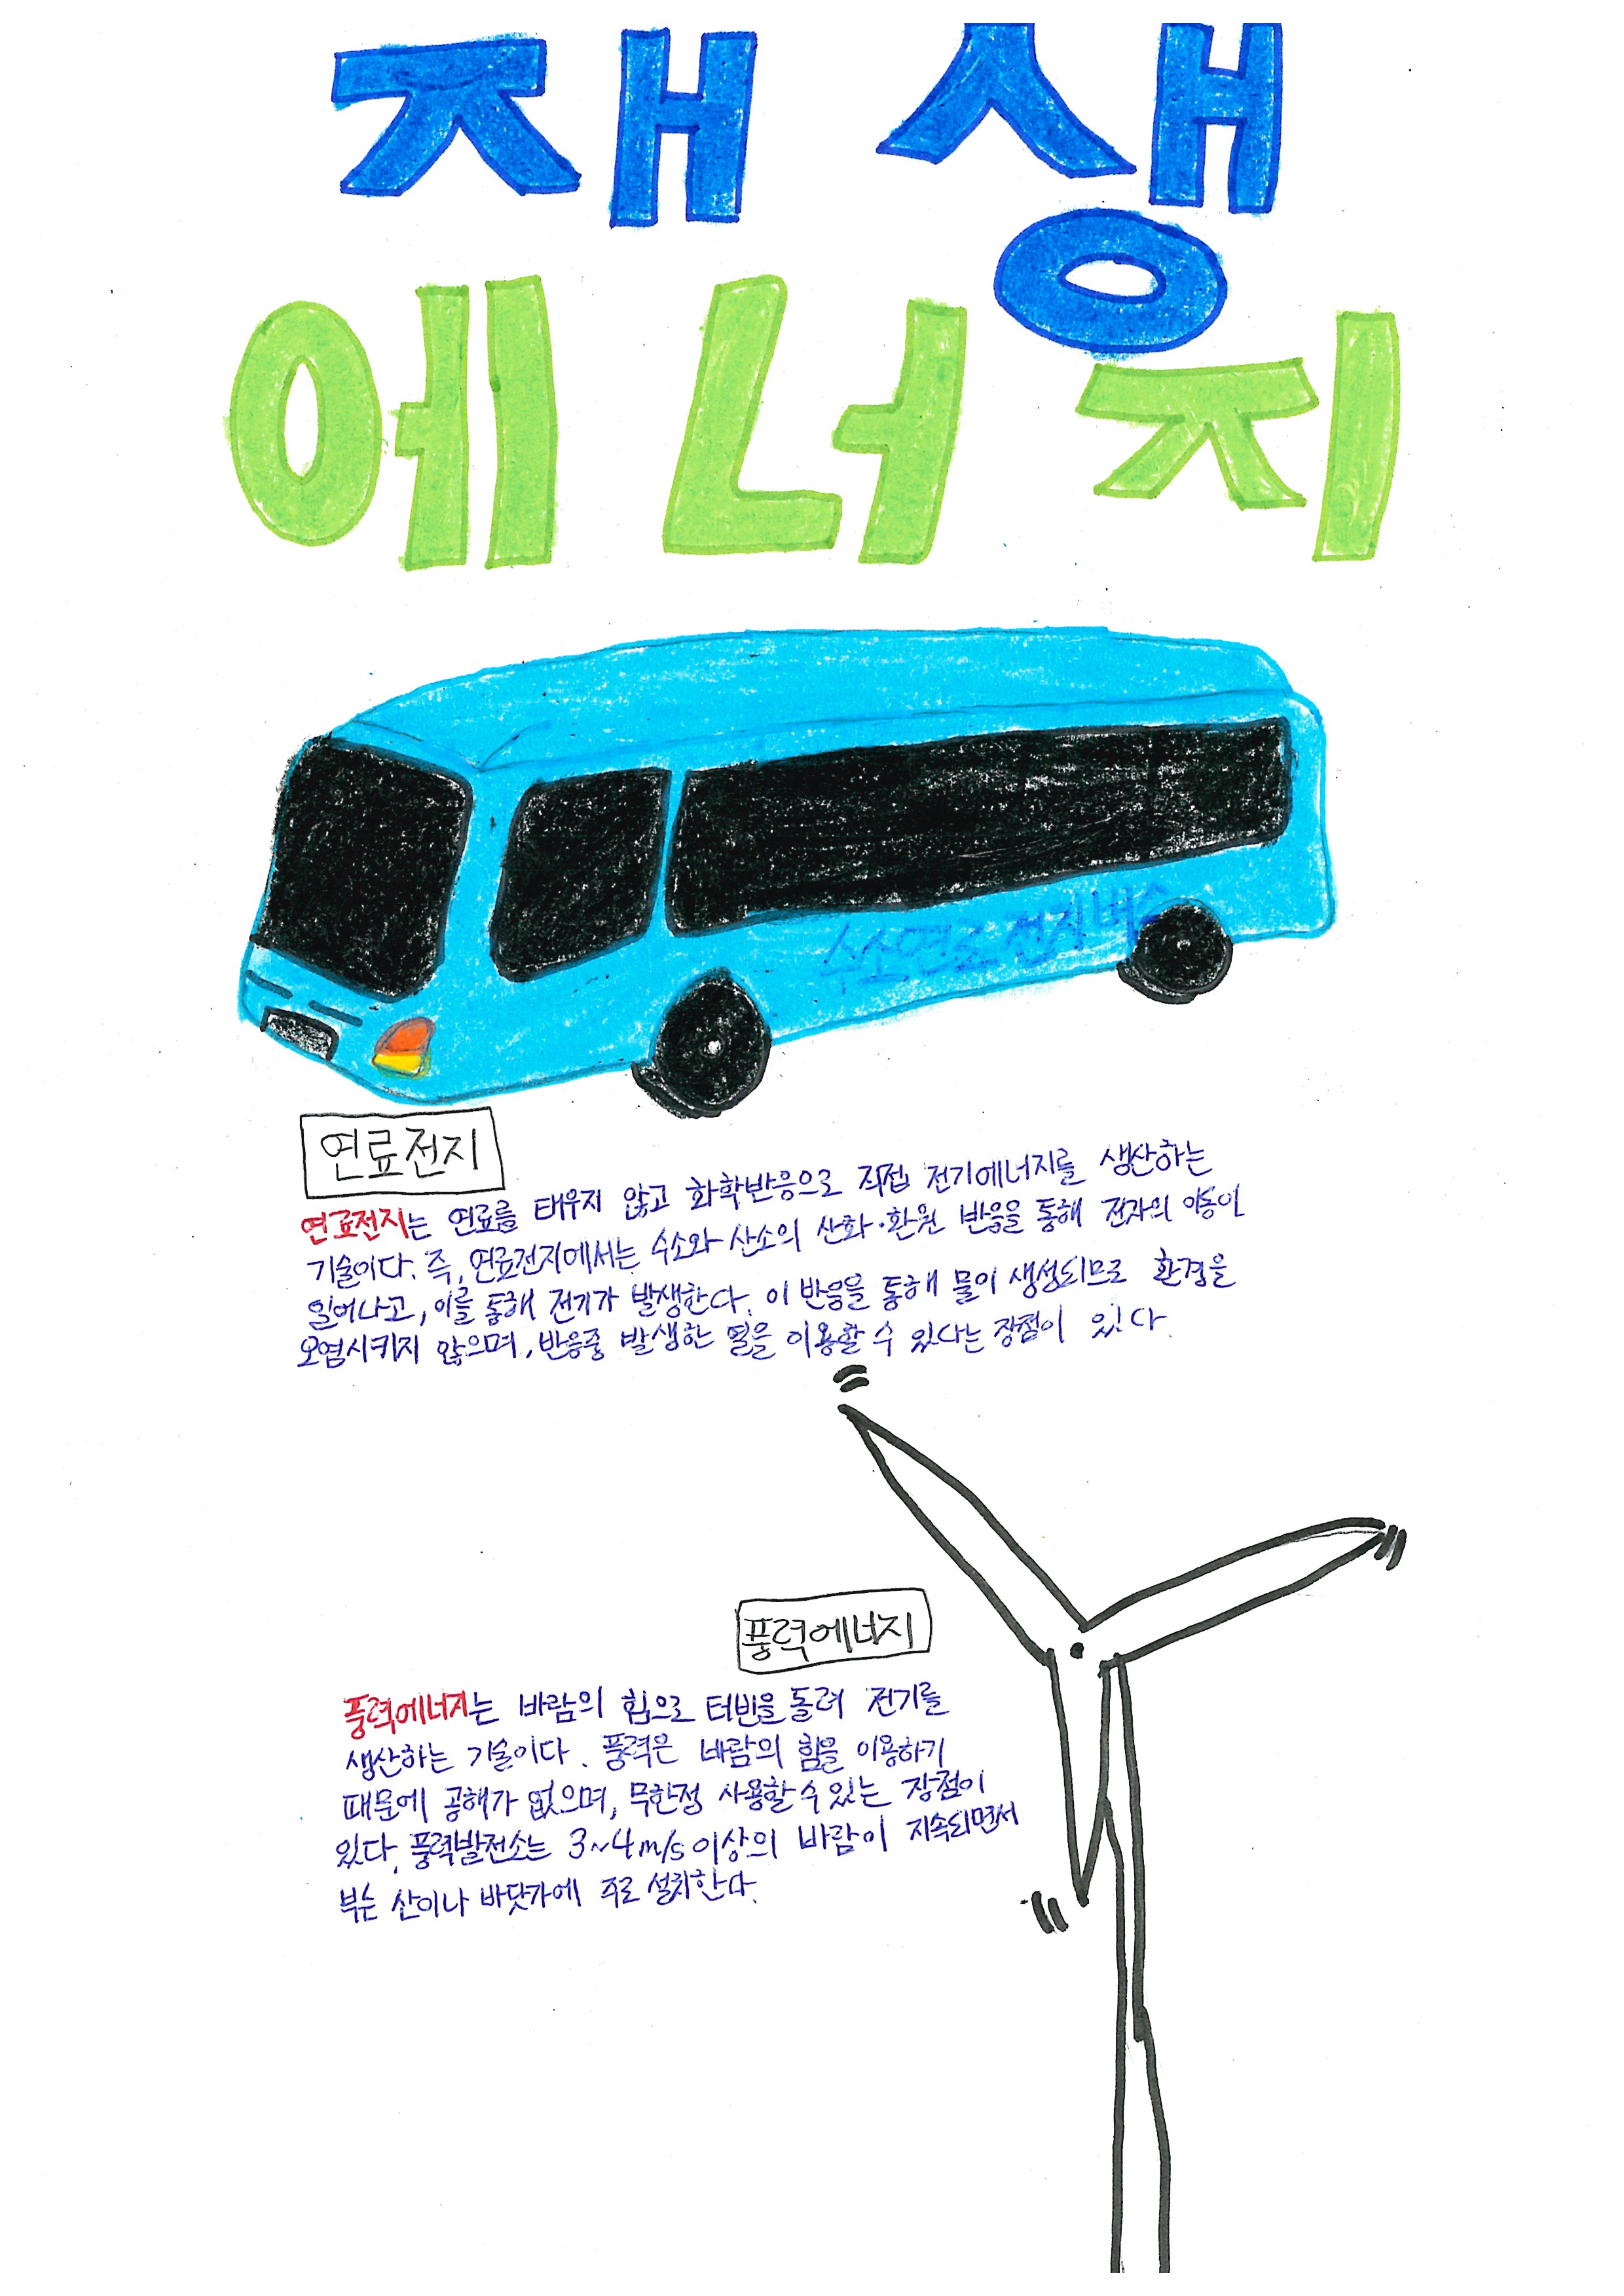 재생
에너지
수소연료전지버스
연료전지
연료전지는 연료를 태우지 않고 화학반응으로 직접 전기에너지를 생산하는
기술이다. 즉, 연료전지에서는 수소와 산소의 산화·환원 반응을 통해 전자의 이동이
일어나고, 이를 통해 전기가 발생한다. 이 반응을 통해 물이 생성되므로 환경을
오염시키지 않으며, 반응중 발생한 열을 이용할 수 있다는 장점이 있다.
풍력에너지
풍력에너지는 바람의 힘으로 터빈을 돌려 전기를
생산하는 기술이다. 풍력은 바람의 힘을 이용하기
때문에 공해가 없으며, 무한정 사용할 수 있는 장점이
있다. 풍력발전소는 3~4m/s 이상의 바람이 지속되면서
부는 산이나 바닷가에 주로 설치한다.